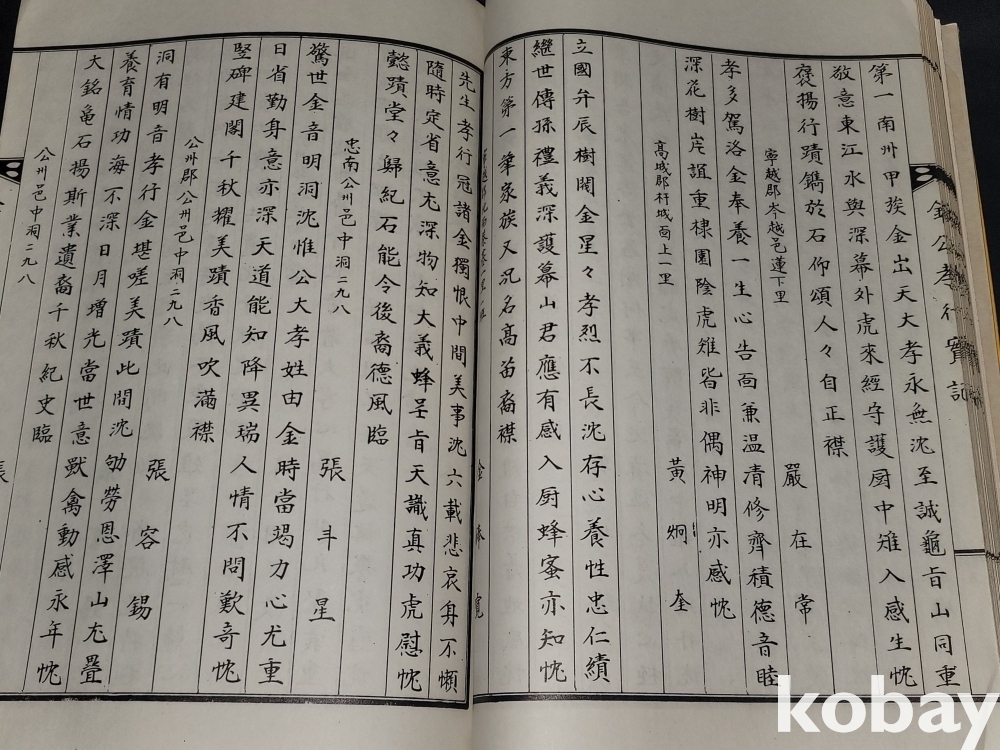 孝行實記
第一南州甲族金出天大孝永無沈至誠龜旨山同重
敬意東江水與深幕外虎來經守護厨中雉入感生忱
褒揚行蹟鐫於石仰頌人々自正襟
寧越郡 越邑蓮下里
嚴在常
孝多駕洛金奉養一生心告面兼温清修齊積德音睦
深花樹岸誼重棣園陰虎雉皆非偶神明亦感忱
高城郡杆城面上一里
黄炯奎
立國弁辰樹閥金星々孝烈不長沈存心養性忠仁績
繼世傳孫禮義深護幕山君應有感入厨蜂蜜亦知忱
東方第一華家族又况名高笛裔襟
先生孝行冠諸金獨恨中間美事沈六載悲哀身不懶
隨時定省意尤深物知大義蜂呈旨天識真功虎慰忱
懿蹟堂々歸紀石能令後裔德風臨
忠南公州邑中洞二九八
張斗星
驚世金音明洞沈惟公大孝姓由金時當竭力心尤重
日省勤身意亦深天道能知降異瑞人情不問歎奇忱
竪碑建閣千秋耀美蹟香風吹滿襟
公州郡公州邑中洞二九八
張容錫
洞有明音孝行金堪嗟美蹟此間沈劬勞恩澤山尤疊
養育情功海不深日月增光當世意獸禽動感永年忱
大銘龜石揚斯業遺裔千秋紀史臨
公州邑中洞二九八
張
kobay